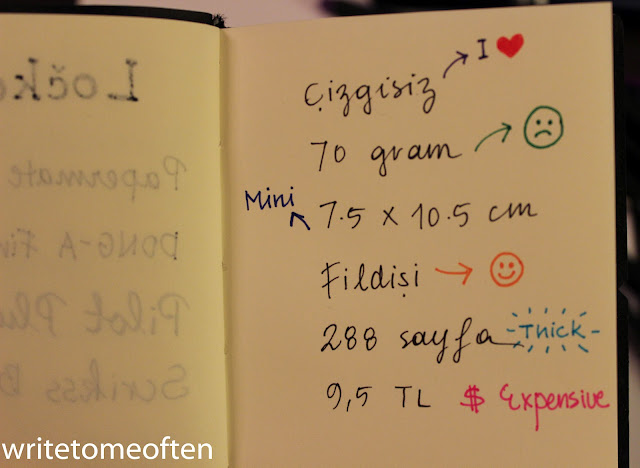 Ločk
Papermate
DONG-A Fin
Pilot Plu
Scrikss B
Çizgisiz → I ♥
70 gram → ☹
Mini
7.5 x 10.5 cm
Fildişi → ☺
288 sayfa Thick
9,5 TL $ Expensive
writetomeoften